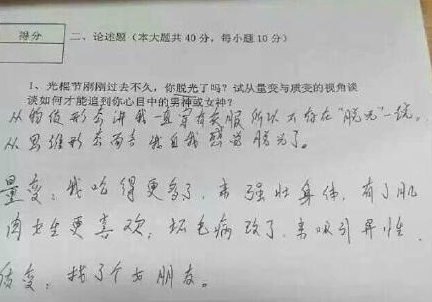 得分
二、论述题（本大题共40分，每小题10分）
1、光棍节刚刚过去不久，你脱光了吗？试从量变与质变的视角谈
谈如何才能追到你心目中的男神或女神？
从物质形态讲我一直穿有衣服所以不存在"脱光"一说。
从思维形态而言 我自我感觉脱光了。
量变：我吃得更多了，来强壮身体，有了肌
肉女生更喜欢，坏毛病改了，来吸引异性
质变：找了个女朋友。